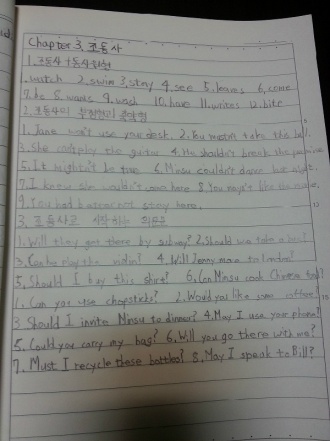 Chapter 3. 조동사
1. 조동사+동사원형
1. watch 2. swim 3. stay 4. see 5. learns 6. come
7. be 8. wants 9. wash 10. have 11. writes 12. bite
2. 조동사의 부정형과
1. Jane won't use your desk. 2. You mustn't take the
3. She can't play the guitar 4. He shouldn't break the
5. It mightn't be true 6. Minsu couldn't dance last night.
7. I knew she wouldn't come here 8. You mayn't like the
9. You had better not stay here.
3. 조동사로 시작하는 의문문
1. Will they get there by subway? 2. Should we take a
3. Can he play the violin? 4. Will Jenny move to London?
5. Should I buy this shirt? 6. Can Minsu cook Chinese food?
1. Can you use chopsticks? 2. Would you like some coffee?
3 Should I invite Minsu to dinner? 4. May I use your phone?
5. Could you carry my bag? 6. Will you go there with me?
7. Must I recycle these bottles? 8. May I speak to Bill?